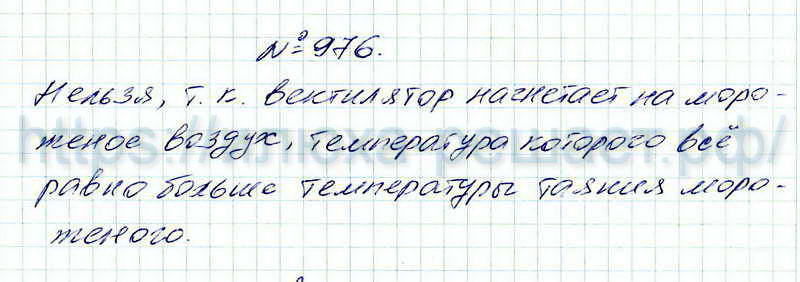 № 976.
Нельзя, т. к. вентилятор нагнетает на моро-
женое воздух, температура которого всё
равно больше температуры таяния моро-
женого.